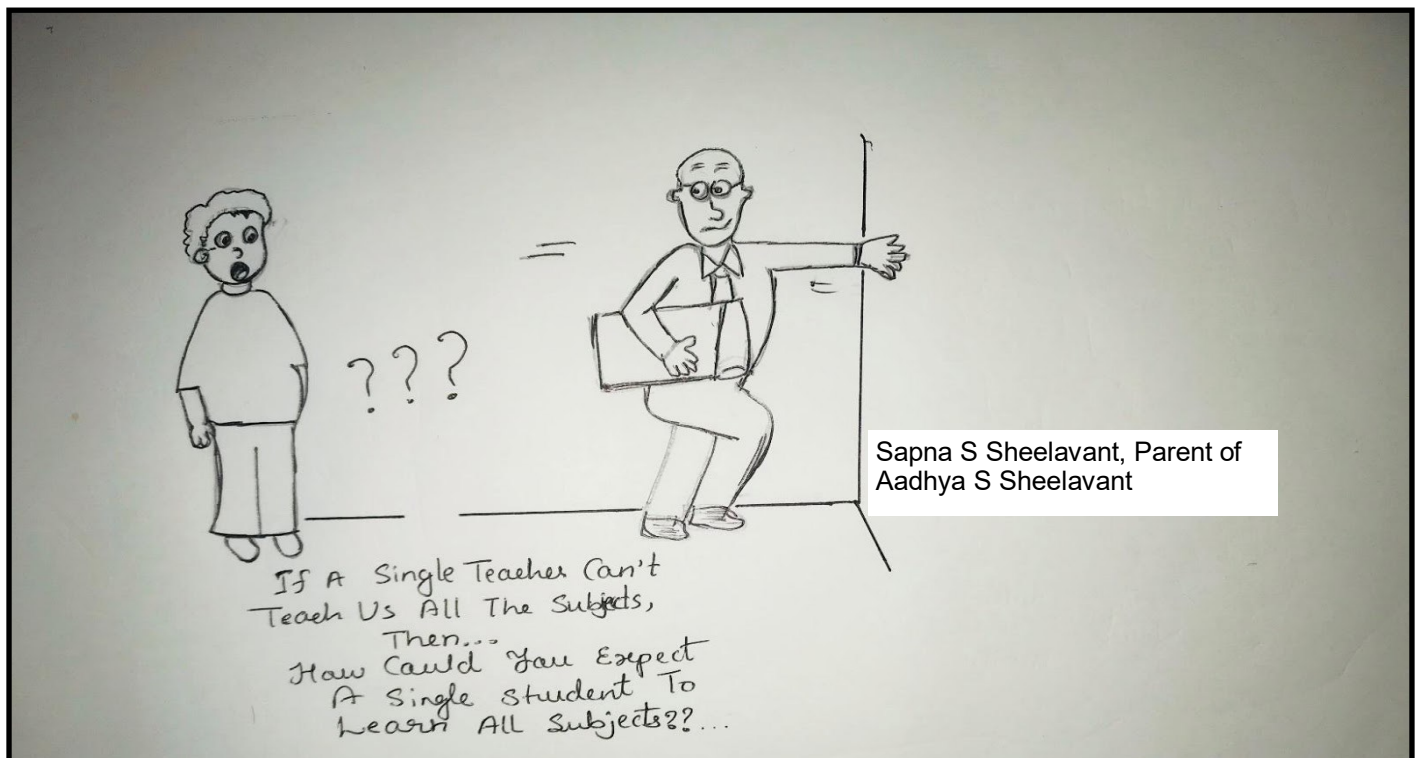 ???
Sapna S Sheelavant, Parent of
Aadhya S Sheelavant
If A Single Teacher Can't
Teach Us All The Subjects,
Then...
How Could You Expect
A Single Student To
Learn All Subjects??...